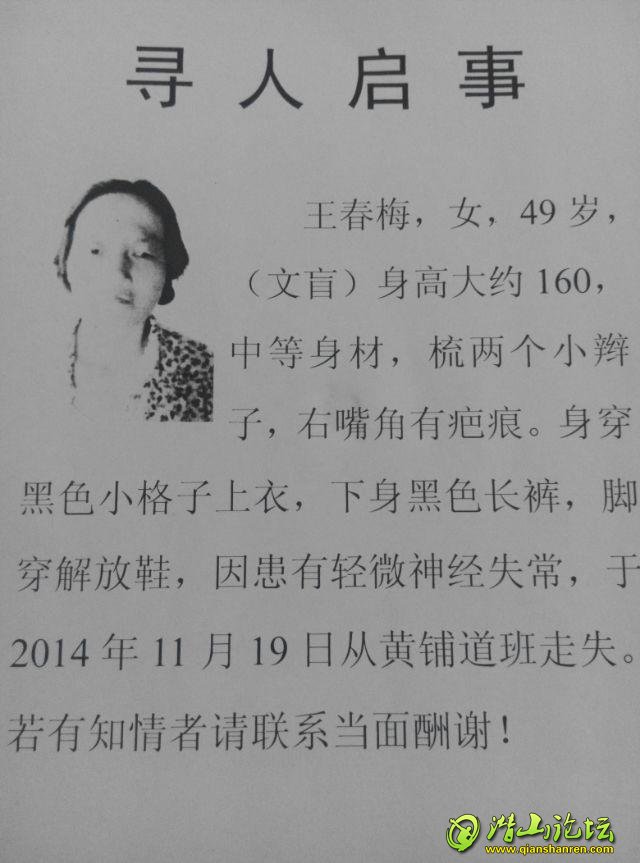 寻人启事
王春梅，女，49 岁，
（文盲）身高大约 160，
中等身材，梳两个小辫
子，右嘴角有疤痕。身穿
黑色小格子上衣，下身黑色长裤，脚
穿解放鞋，因患有轻微神经失常，于
2014 年 11 月 19 日从黄铺道班走失。
若有知情者请联系当面酬谢！
潜山论坛
www.qianshanren.com